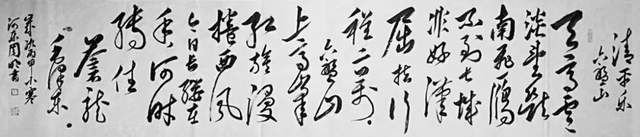 清平乐
六盘山
天高云
淡望断
南飞雁
不到长城
非好汉
屈指行
程二万
六盘山
上高峰
红旗漫
捲西风
今日长缨在
手何时
缚住
苍龙
毛泽东
小寒
书